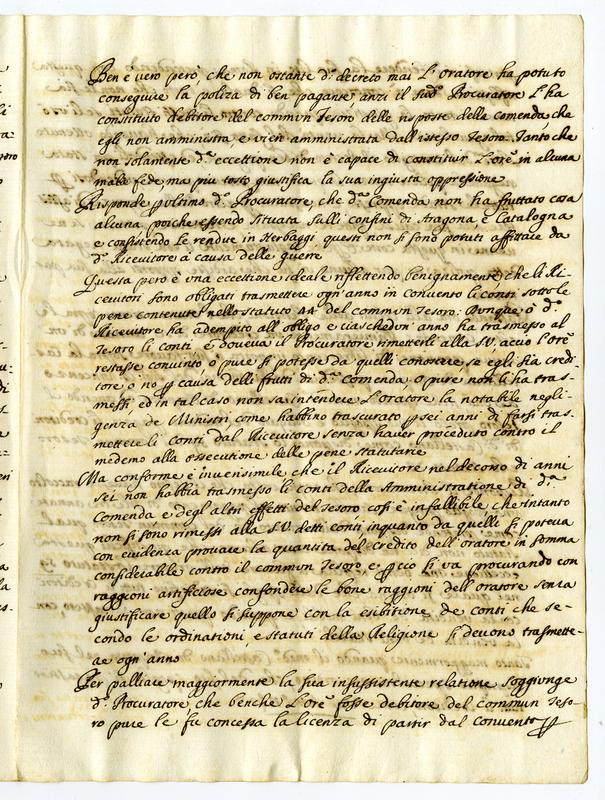 Ben è vero però, che non ostante d.º decreto mai L'oratore ha potuto
conseguire la poliza di ben pagante anzi il sud.º Procuratore L'ha
constituito debitore del commun Tesoro delle risposte della comenda che
egli non amministra, e vien amministrata dall'istesso Tesoro. Tanto che
non solamente d.ª eccettione non è capace di constituir L'ore in alcuna
mala fede, ma piu tosto giustifica la sua ingiusta oppressione
Risponde p ultimo d.º Procuratore, che d.ª Comenda non ha fruttato cosa
alcuna poiche essendo situata sulli confini di Aragona e Catalogna
e consistendo Le rendite in Herbaggi questi non si sono potuti affittare da
d.º Ricevitore à causa delle guerre
Questa però è una eccettione ideale riflettendo benignamente che li Ri-
cevitori sono obligati trasmettere ogn'anno in convento li conti sotto le
pene contenute nello statuto 44 del commun Tesoro: Dunque ò d.º
Ricevitore ha adempito all'obligo e ciaschedun anno ha trasmesso al
Tesoro li conti E doueva il Procuratore rimetterli alla S.V. acciò l'ore
restasse convinto, ò pure si potesse da quelli conoscere se egli sia credi-
tore ò no p causa delli frutti di d.ª Comenda, O pure non li ha tras-
messi, ed in tal caso non sa intendere L'oratore la notabile negli-
genza de Ministri come habbino trascurato p sei anni di farsi tras-
mettere li conti dal Ricevitore senza hauer proceduto contro il
medemo alla essecutione delle pene statutarie
Ma conforme è inuerisimile che il Ricevitore nel decorso di anni
sei non habbia trasmesso li conti della Amministratione di d.ª
Comenda e degl'altri effetti del Tesoro così è infallibile, che intanto
non si sono rimessi alla S.V. detti conti inquanto da quelli si poteua
con evidenza prouare la quantità del credito dell'oratore in somma
considerabile contro il commun Tesoro, e p ciò si va procurando con
raggioni artificiose confondere le bone raggioni dell'oratore senza
giustificare quello si suppone con la esibitione de conti, che se-
condo le ordinationi, e statuti della Religione si deuono trasmette-
re ogn'anno
Per palliare maggiormente la sua insussistente relatione soggiunge
d.º Procuratore, che benche L'ore fosse debitore del commun Teso-
ro pure le fu concessa la licenza di partir dal convento